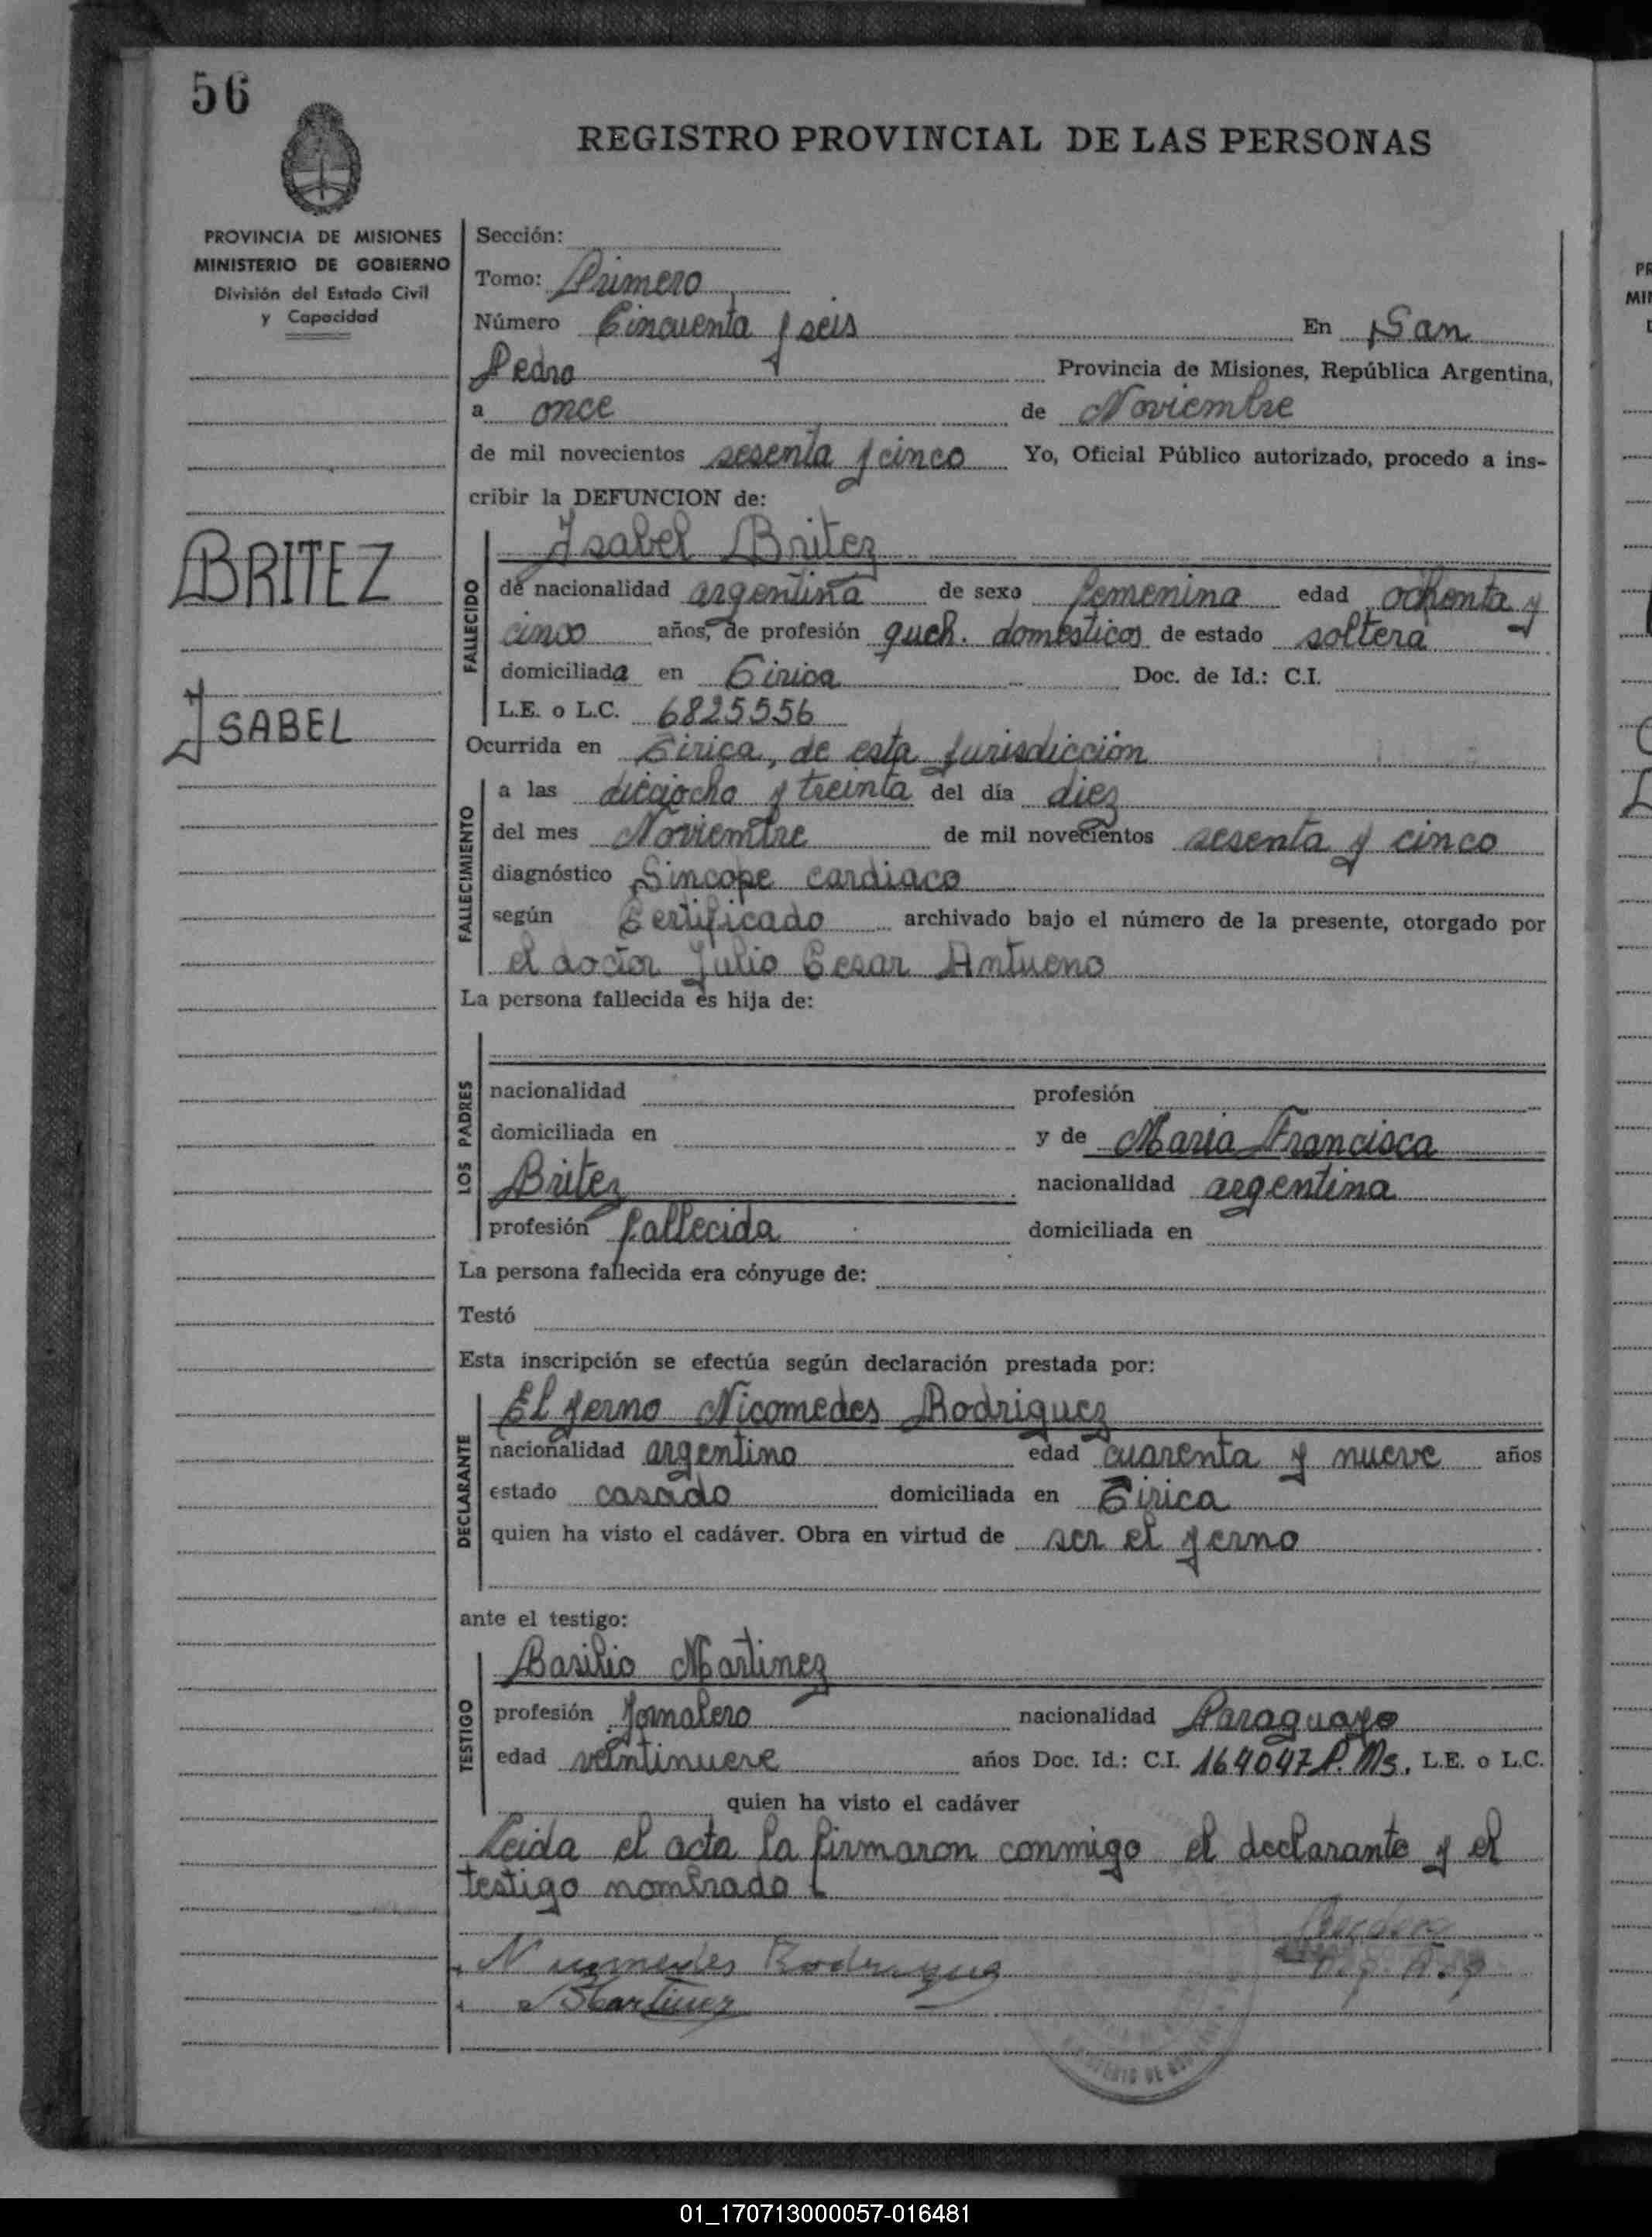 56
REGISTRO PROVINCIAL DE LAS PERSONAS
PROVINCIA DE MISIONES
MINISTERIO DE GOBIERNO
División del Estado Civil
y Capacidad
BRITEZ
ISABEL
Sección:
Tomo: Primero
Número Cincuenta y seis En San
Pedro Provincia de Misiones, República Argentina,
a once de Noviembre
de mil novecientos sesenta y cinco Yo, Oficial Público autorizado, procedo a ins-
cribir la DEFUNCION de:
FALLECIDO
Isabel Britez
de nacionalidad argentina de sexo femenina edad ochenta y
cinco años, de profesión queh. domesticos de estado soltera
domiciliada en Cirica Doc. de Id.: C.I.
L.E. o L.C. 6825556
Ocurrida en Cirica, de esta jurisdicción
FALLECIMIENTO
a las dieciocho y treinta del día diez
del mes Noviembre de mil novecientos sesenta y cinco
diagnóstico Sincope cardiaco
según Certificado archivado bajo el número de la presente, otorgado por
el doctor Julio Cesar Antueno
La persona fallecida es hija de:
LOS PADRES
nacionalidad profesión
domiciliada en y de Maria Francisca
Britez nacionalidad argentina
profesión fallecida domiciliada en
La persona fallecida era cónyuge de:
Testó
Esta inscripción se efectúa según declaración prestada por:
DECLARANTE
El yerno Nicomedes Rodriguez
nacionalidad argentino edad cuarenta y nueve años
estado casado domiciliada en Cirica
quien ha visto el cadáver. Obra en virtud de ser el yerno
ante el testigo:
TESTIGO
Basilio Martinez
profesión Jornalero nacionalidad Paraguayo
edad veintinueve años Doc. Id.: C.I. 164047 P. Ms. L.E. o L.C.
quien ha visto el cadáver
Leida el acta la firmaron conmigo el declarante y el
testigo nombrado
Nicomedes Rodriguez
BMartinez
01_170713000057-016481